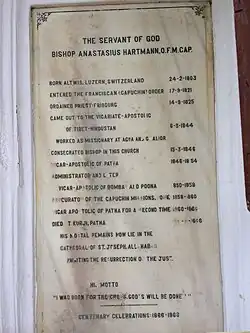 THE SERVANT OF GOD
BISHOP ANASTASIUS HARTMANN, O.F.M. CAP.
BORN ALTWIS, LUZERN, SWITZERLAND 24-2-1803
ENTERED THE FRANCISCAN (CAPUCHIN) ORDER 17-9-1821
ORDAINED PRIEST: FRIBOURG 14-9-1825
CAME OUT TO THE VICARIATE-APOSTOLIC
OF TIBET-HINDUSTAN 6-5-1844
WORKED AS MISSIONARY AT AGRA AND G ALIOR
CONSECRATED BISHOP IN THIS CHURCH 15-3-1846
VICAR-APOSTOLIC OF PATNA 1846-1854
ADMINISTRATOR AND L TER
VICAR-APOSTOLIC OF BOMBAY AND POONA 850-1858
PROCURATOR OF THE CAPUCHIN MISSIONS, ROME 1858-860
VICAR APOSTOLIC OF PATNA FOR A SECOND TIME 1860-1866
DIED T KURJI, PATNA
HIS MORTAL REMAINS NOW LIE IN THE
CATHEDRAL OF ST. JOSEPH, ALL HABAD
AWAITING THE RESURRECTION OF THE JUST.
HIS MOTTO
"I WAS BORN FOR THE CROSS, GOD'S WILL BE DONE"
CENTENARY CELEBRATIONS: 1866-1966